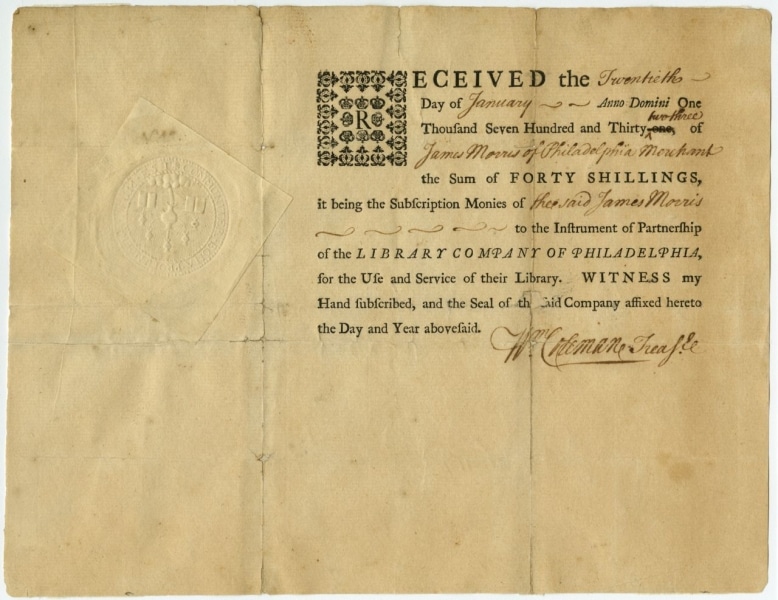 RECEIVED the Twentieth
Day of January Anno Domini One
two three
Thouſand Seven Hundred and Thirty-one, of
James Morris of Philadelphia Merchant
the Sum of FORTY SHILLINGS,
it being the Subſcription Monies of the said James Morris
to the Inſtrument of Partnerſhip
of the LIBRARY COMPANY OF PHILADELPHIA,
for the Uſe and Service of their Library. WITNESS my
Hand ſubſcribed, and the Seal of the ſaid Company affixed hereto
the Day and Year aboveſaid.
Wm Coleman Treasr